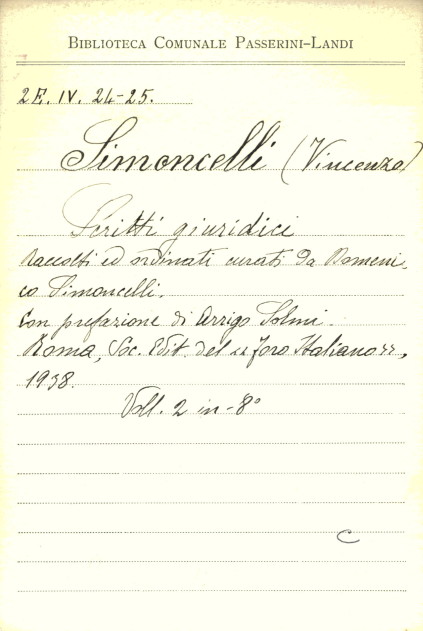 BIBLIOTECA COMUNALE PASSERINI-LANDI
2F. IV. 24-25.
Simoncelli (Vincenzo)
Scritti giuridici
raccolti ed ordinati curati da Domeni-
co Simoncelli.
Con prefazione di Arrigo Solmi.
Roma, Soc. Edit. del "Foro Italiano",
1938.
Voll. 2 in-8°
C